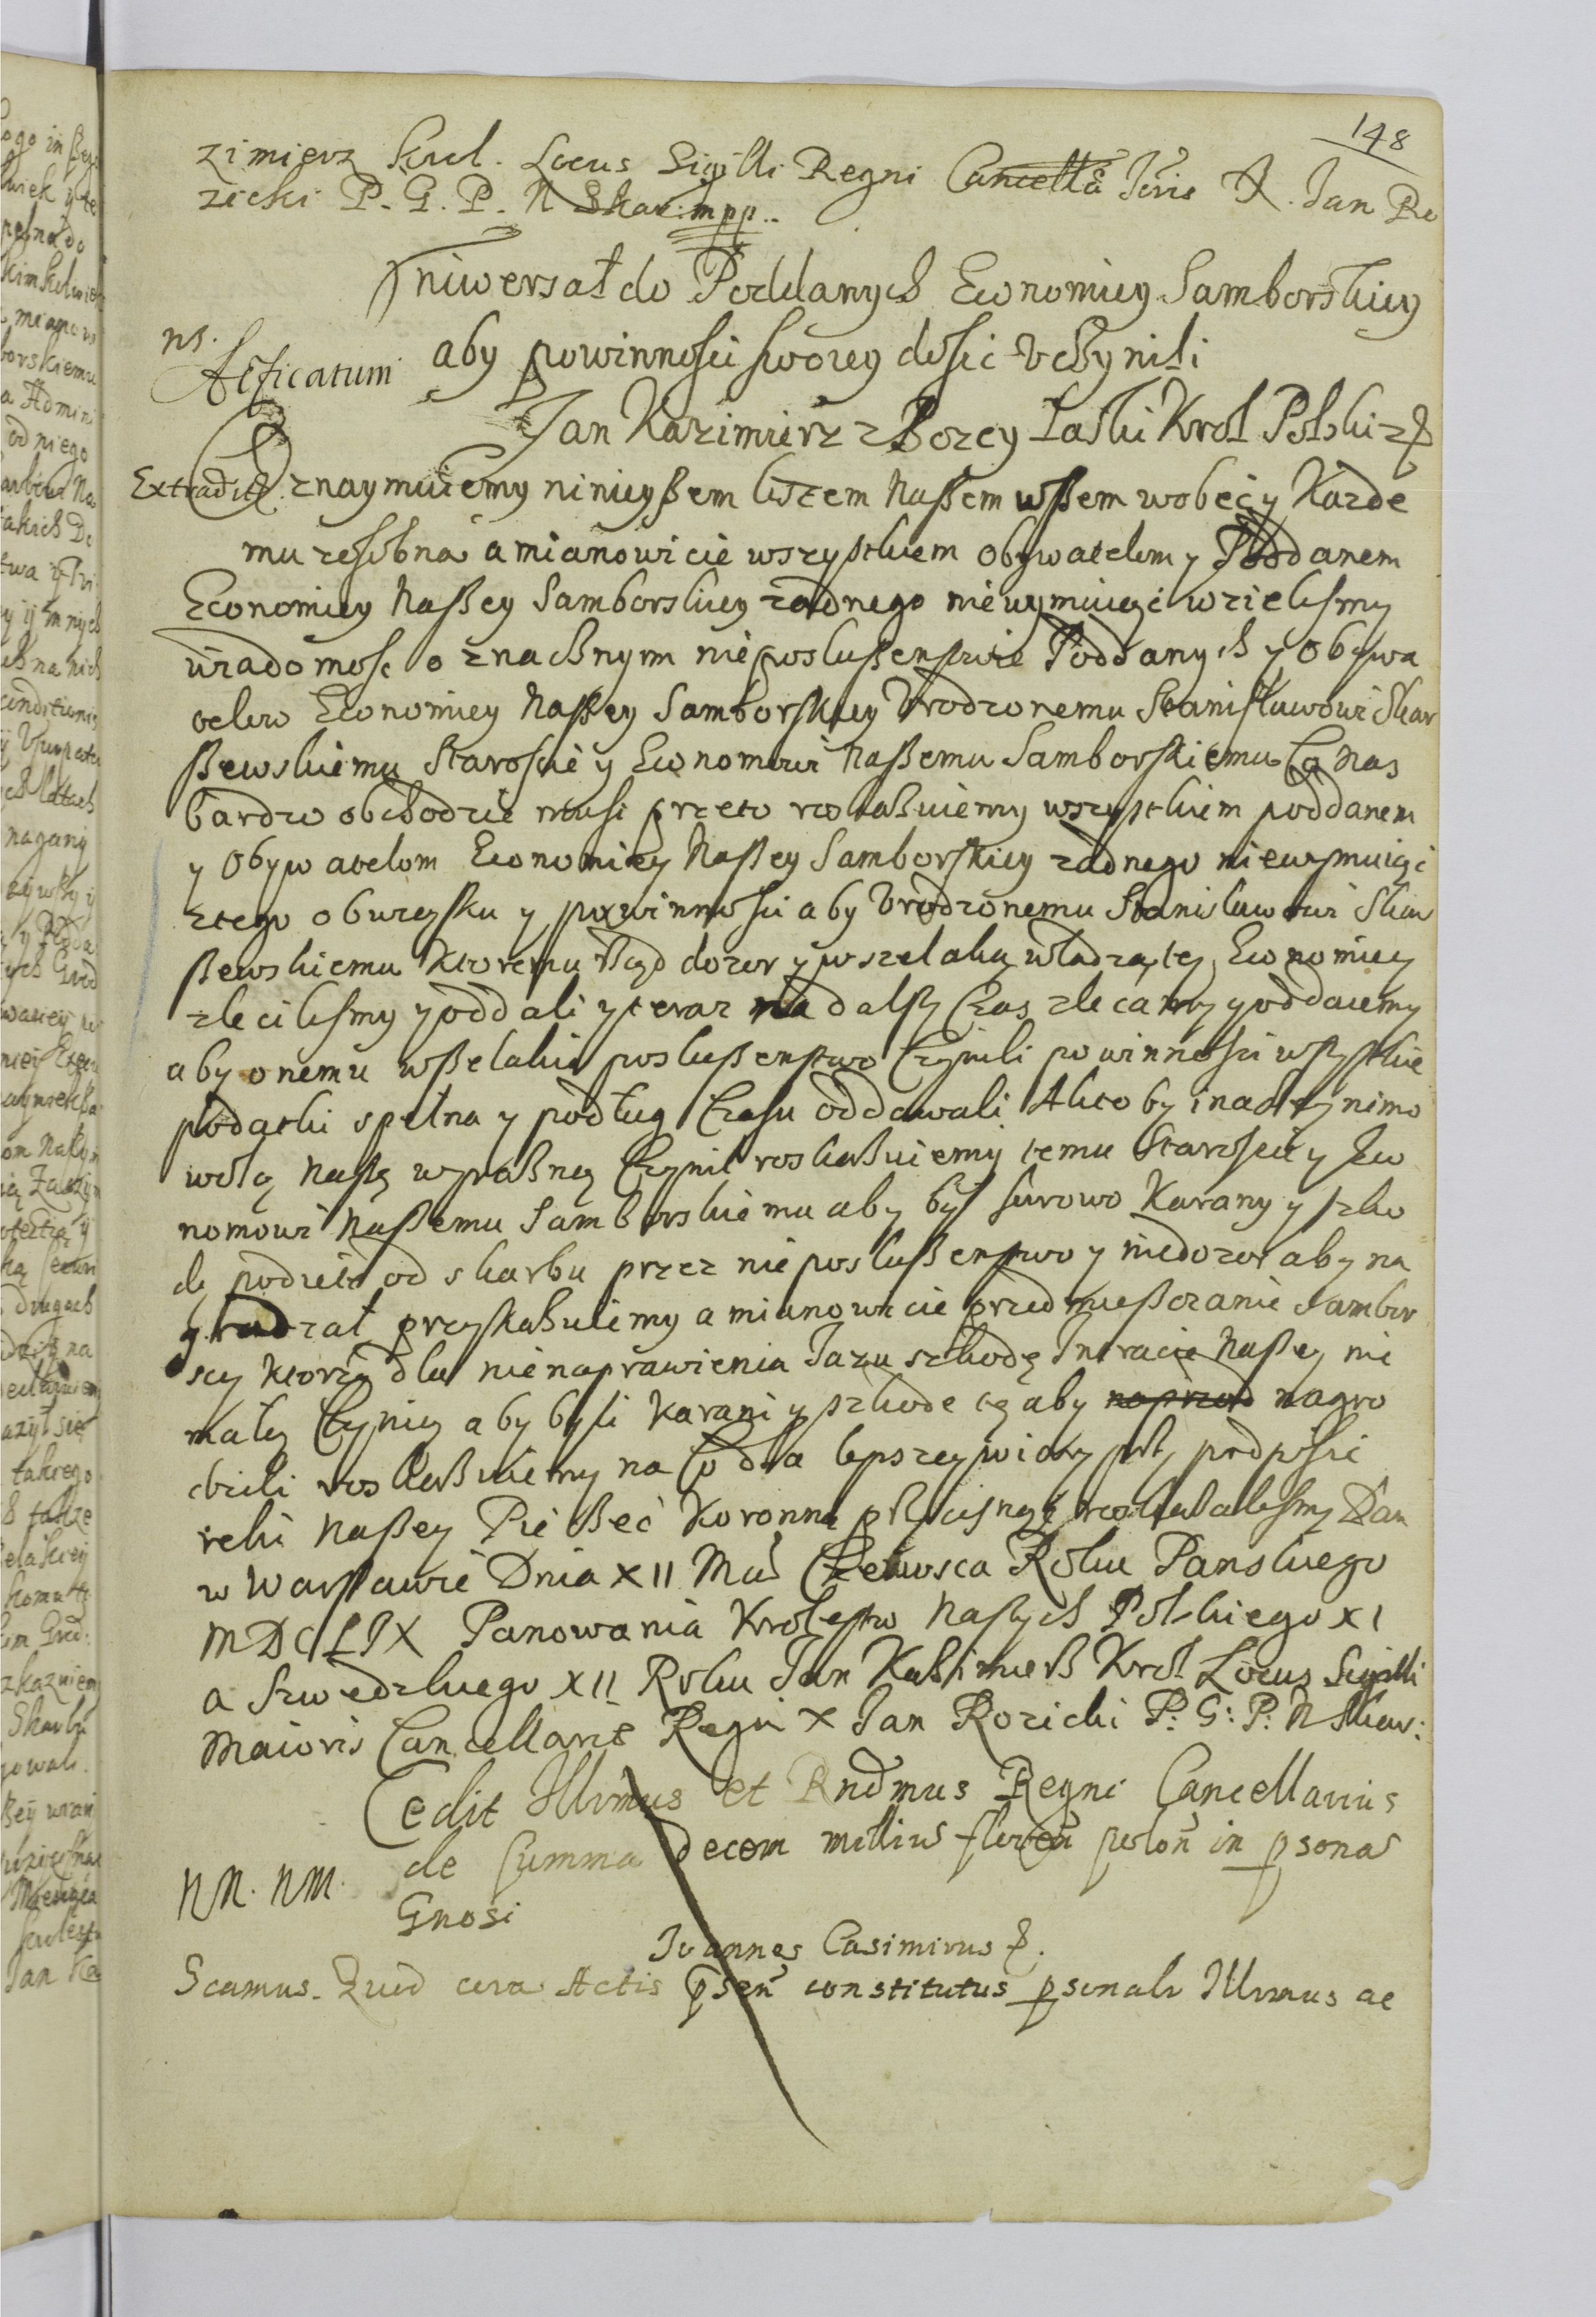 148
zimierz Krol. Locus Sigilli Regni Cancellã Joris X. Jan Ro
zicki P. G. P. N Skar: mpp.
Vniwersał do Poddanych Economiey Samborskiey
aby powinnosci swoiey dosic vczynili
ns.
Afficatum
Jan Kazimierz z Bozey Łaski Krol Polski
Extradit.
Oznaymuiemy ninieyßem listem Naßem wßem wobec y Kazde
mu zosobna a mianowicie wszystkiem Obywatelom y Poddanem
Economiey Naßey Samborskiey zadnego niewymuiąc wzielismy
wiadomosc o znacznym niepослußenstwie Poddanych y Obywa
telow Economiey Naßey Samborskiey Vrodzonemu Stanisławowi Skar
ßewskiemu Staroscie y Economowi Naßemu Samborskiemu Co Nas
bardzo obchodzic musi przeto roskazuiemy wszystkiem poddanem
y Obywatelom Economiey Naßey Samborskiey zadnego niewymuiąc
ztego obwiązku y powinnosci aby Vrodzonemu Stanisławowi Skar
ßewskiemu Ktoremu Rząd dozor y wszelaką władzą tey Economiey
zlecilismy y oddali y teraz na dalszy Czas zlecamy y oddaiemy
aby onemu wßelakie poslußenstwo Czynili powinnosci wszystkie
podatki spełna y podług Czasu oddawali Ktoby inaczey nimo
wolą Naszę wyraßną Czynił roskazuiemy temu Staroscie y Eco
nomowi Naßemu Samborskiemu aby był surowo Karany y szko
dę podzietą od skarbu przez nieposlußenstwo y niedozor aby na
gradzał przykazuiemy a mianowicie przedmießczanie Sambor
scy Ktorzy dla nienaprawienia Jazu szkodę Intracie Naßey nie
małą Czynią aby byli Karani y szkode tę aby naprzod nagro
dzili roskazuiemy na Co dla lepszey wiary przy podpisie
ręki Naßey Pießęć Koronną przycisnąć roskazalismy Dan
w Warszawie Dnia XII Ma Czerwsca Roku Panskiego
MDCLIX Panowania Krolestw Naszych Polskiego XI
a Szwedzkiego XII Roku Jan Kazimierß Krol Locus Sigilli
Maioris Cancellariæ Regni X Jan Rozicki P: G: P: N Skar:
Cedit Illrmus et Rndmus Regni Cancellarius
de summa decem millius floren polon in psonas
NM. NM.
Gnosi
Joannes Casimirus
Scamus. Quid cora Actis psen constitutus psonalr Illrmus ac